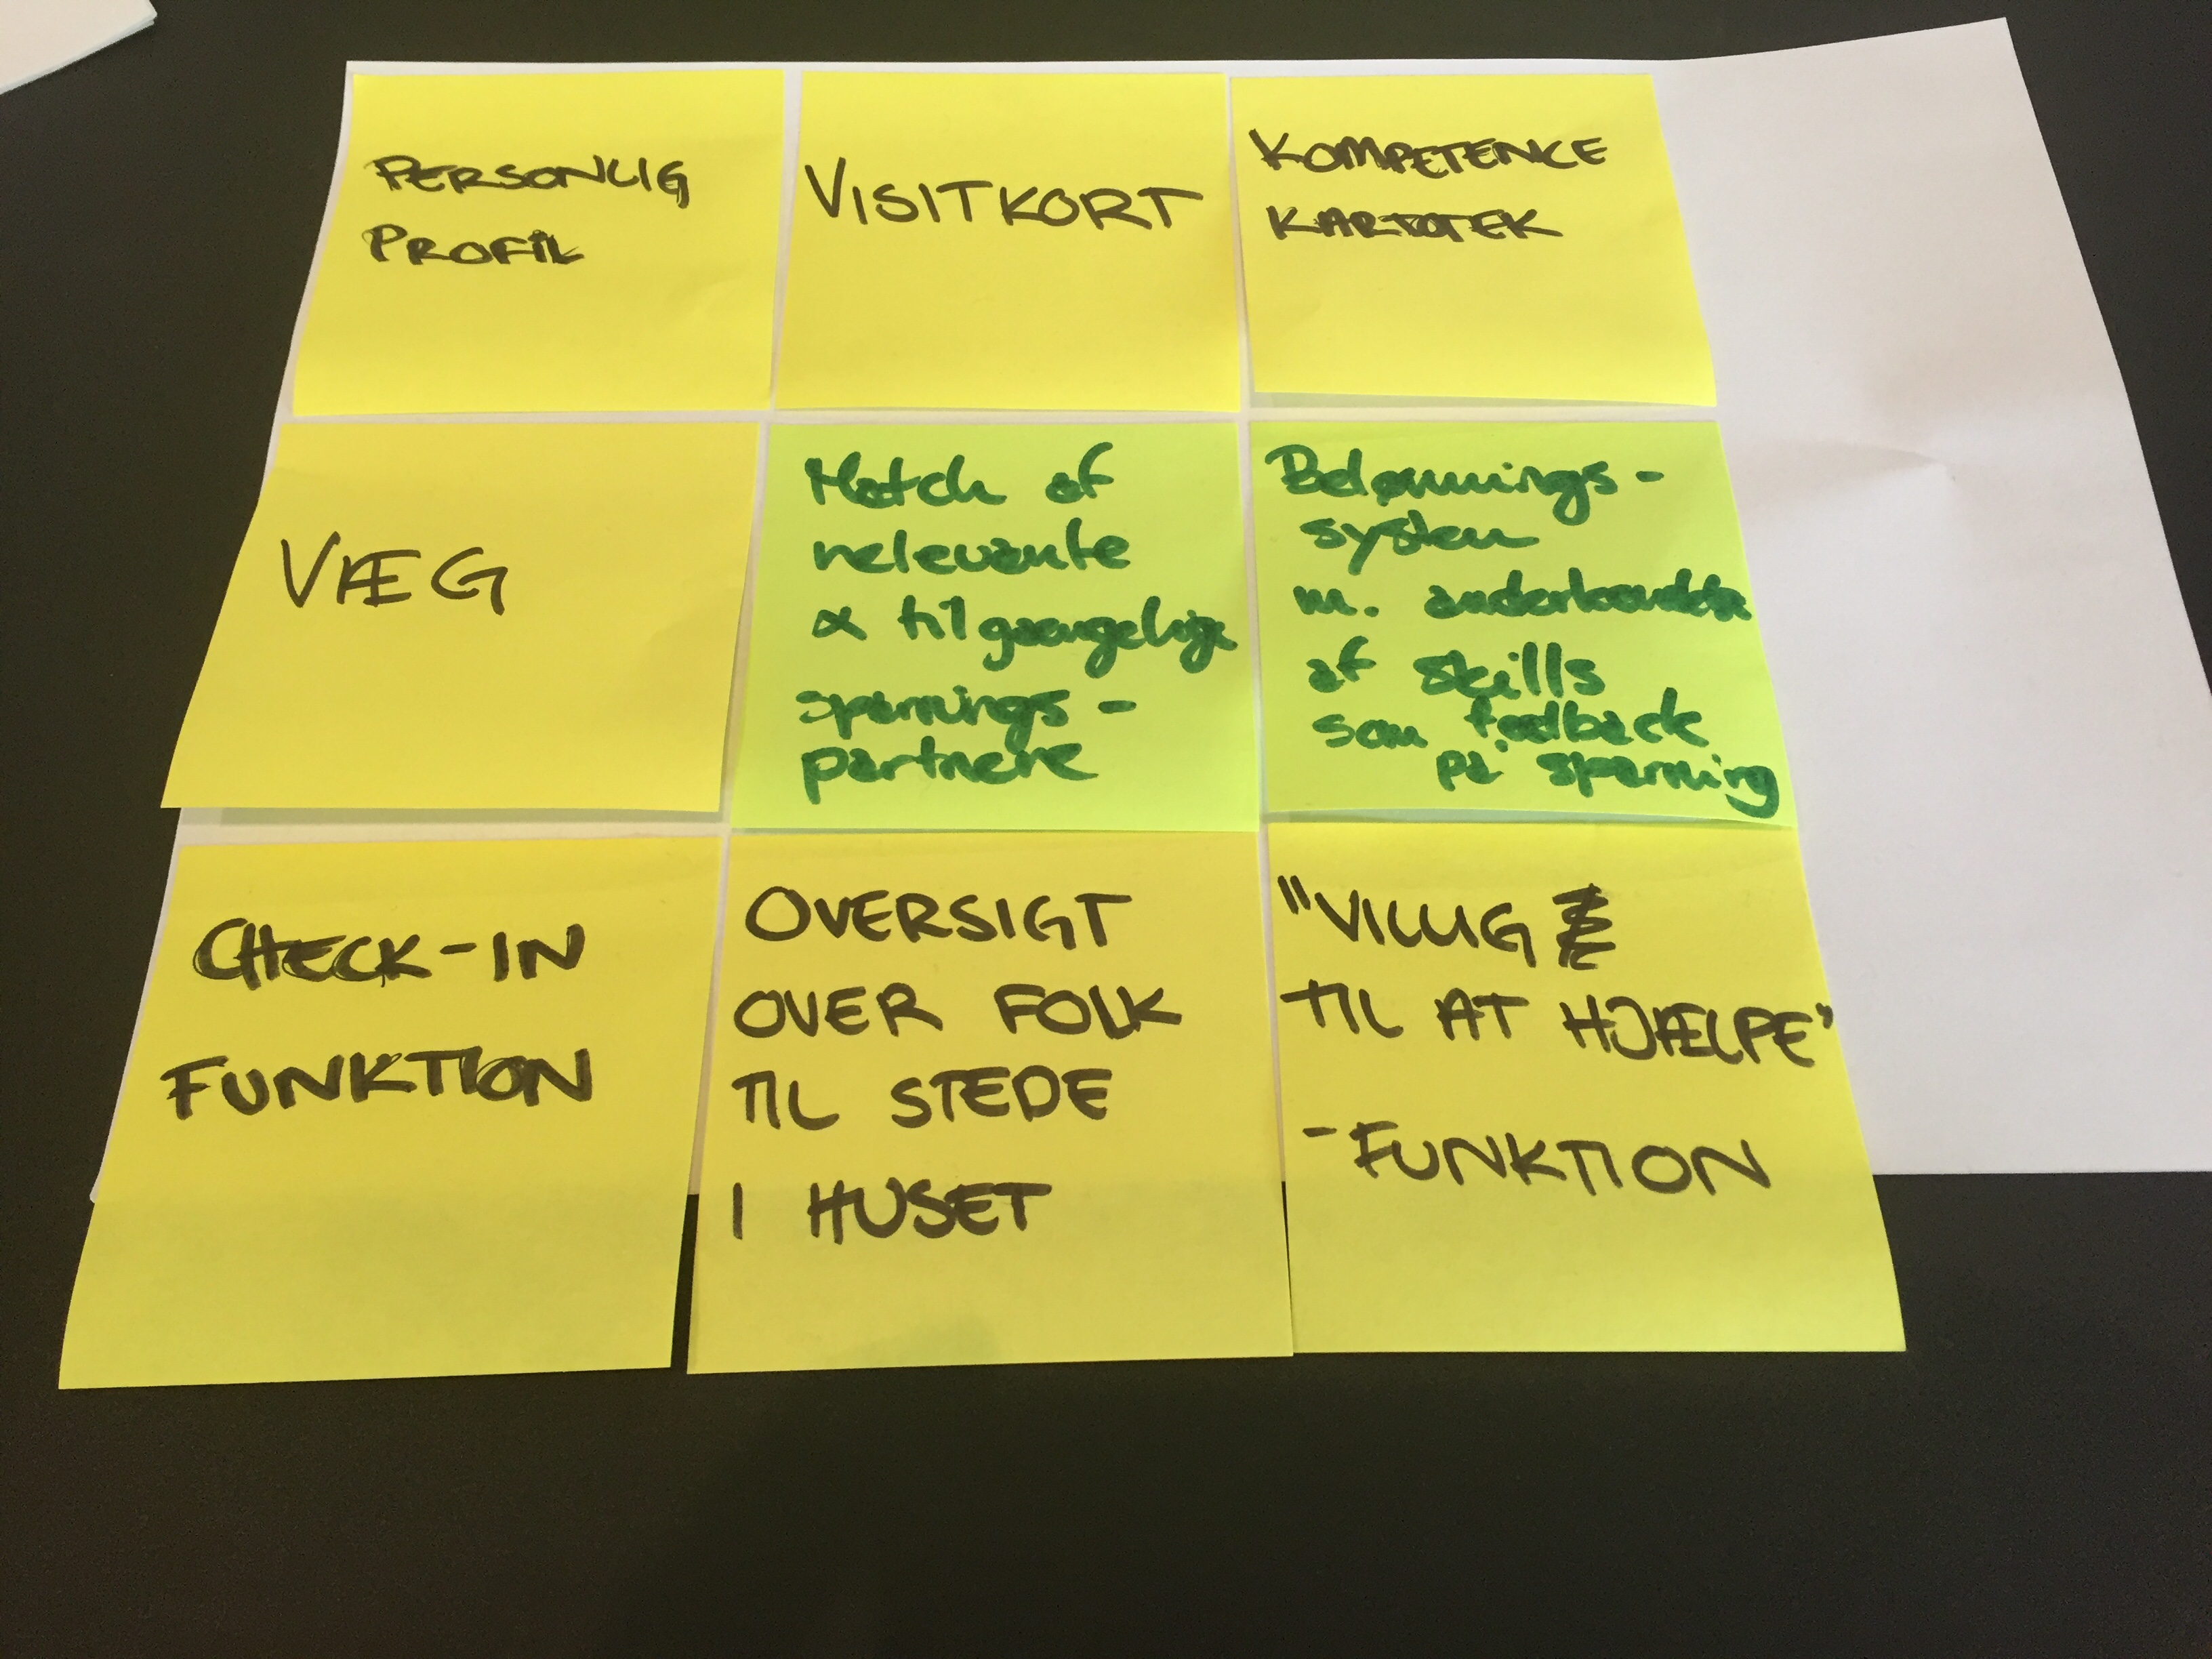 PERSONLIG
PROFIL
VISITKORT
KOMPETENCE
KARTOTEK
VÆG
Match af
relevante
& tilgængelige
sparrings-
partnere
Belønnings-
system
m.
af skills
som feedback
på sparring
CHECK-IN
FUNKTION
OVERSIGT
OVER FOLK
TIL STEDE
I HUSET
"VILLIG
TIL AT HJÆLPE"
-FUNKTION